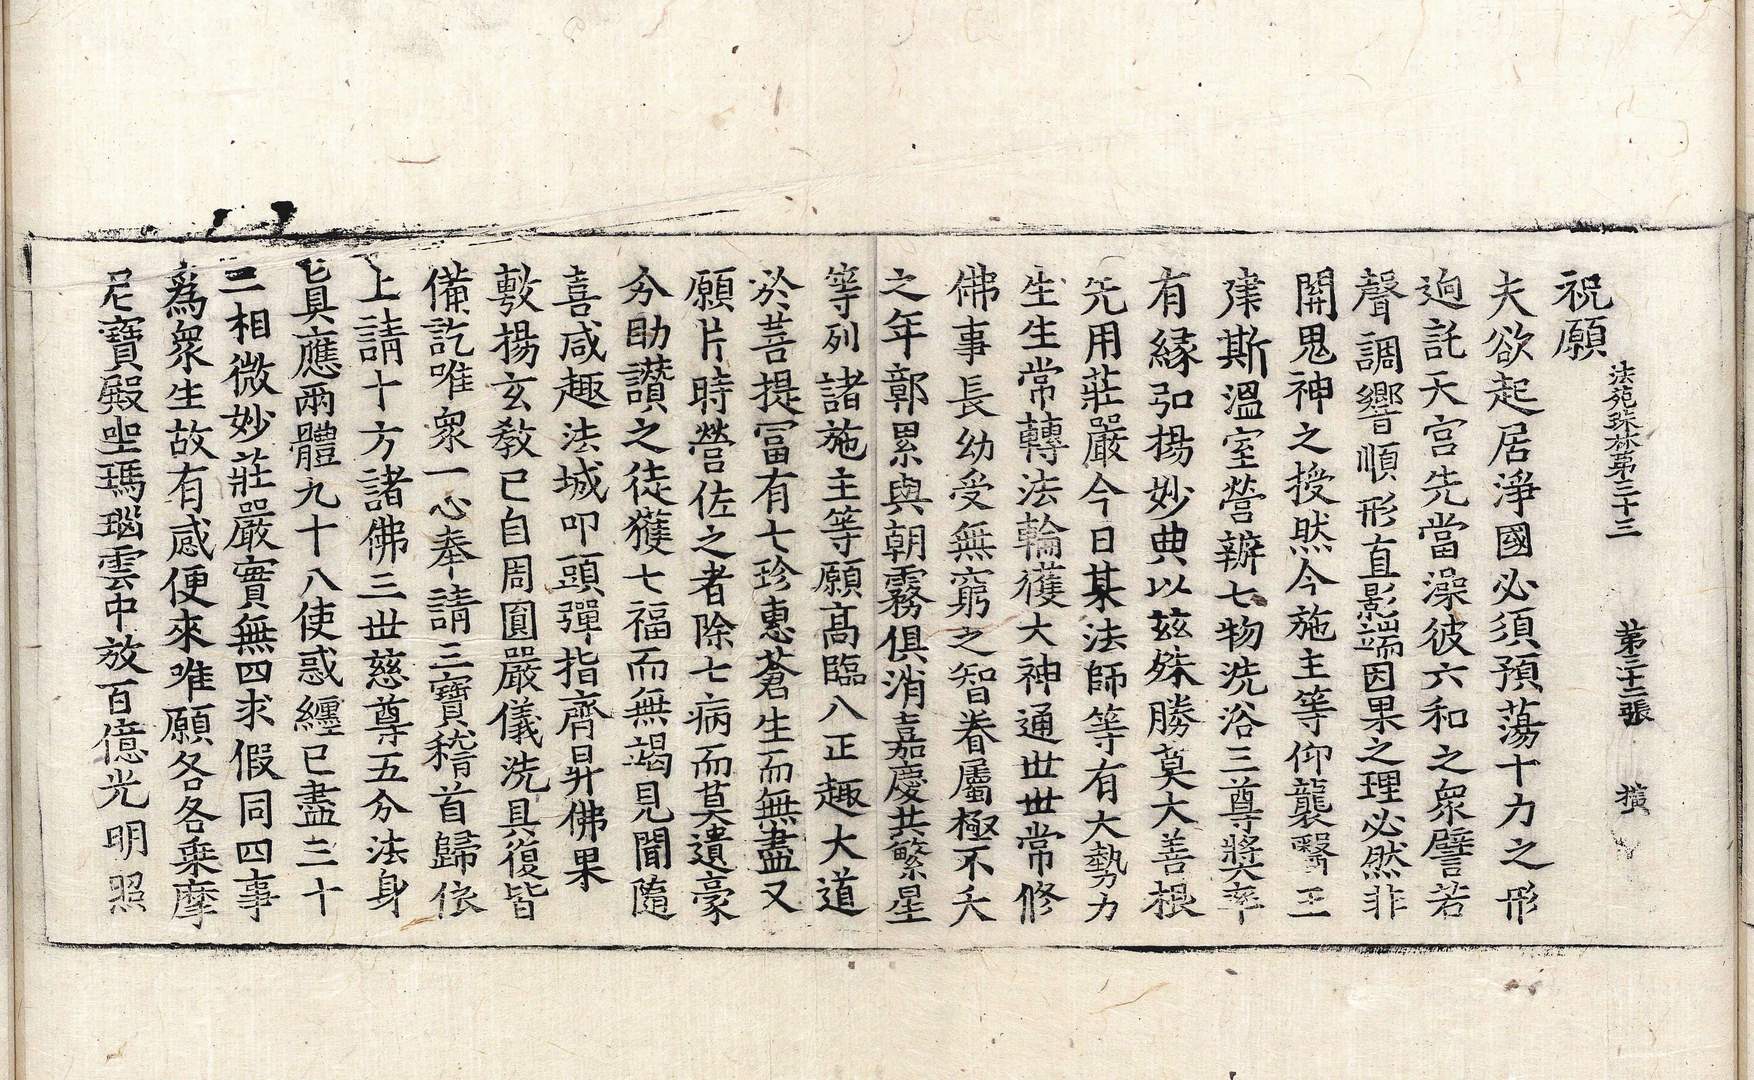 法苑珠林第三十三　第三十二張　横
祝願
夫欲起居淨國必須預蕩十力之形
逈託天宮先當澡彼六和之衆譬若
聲調響順形直影端因果之理必然非
關鬼神之授然今施主等仰襲醫王
建斯溫室營辦七物洗浴三尊奬率
有緣弘揚妙典以兹殊勝莫大善根
先用莊嚴今日某法師等有大勢力
生生常轉法輪獲大神通世世常修
佛事長幼受無窮之智眷屬極不夭
之年鄣累與朝霧俱消嘉慶共繁星
等列諸施主等願高臨八正趣大道
於菩提冨有七珍惠蒼生而無盡又
願片時營佐之者除七病而莫遺豪
分助讚之徒獲七福而無竭見聞隨
喜咸趣法城叩頭彈指齊昇佛果
敷揚玄教已自周圓嚴儀洗具復皆
備訖唯衆一心奉請三寶稽首歸依
上請十方諸佛三世慈尊五分法身
真應兩體九十八使惑纏已盡三十
二相微妙莊嚴實無四求假同四事
爲衆生故有感便來唯願各各乗摩
尼寶殿坐瑪瑙雲中放百億光明照